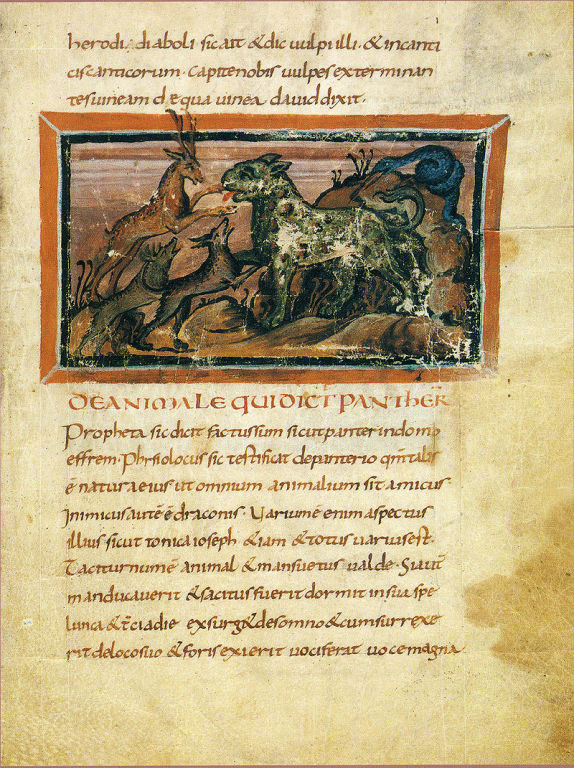 herodi diaboli sicait & dic vulpi illi · & incanti
ciscanticorum · Capitenobis vulpes exterminan
tes vineam de qua vinea david dixit ·
DE ANIMALE QUI DICIT PANTHER
Propheta sic dicit factus sum sicut panter in domo
effrem · Phisiolocus sic testificat depanterio qm̅ talis
ē natura eius ut omnium animalium sit amicus ·
Inimicus autē ē draconis · Variumē enim aspectus
illius sicut tonica ioseph & iam & totus varius est ·
Taciturnumē animal & mansuetus valde · Si aut̅
manducaverit & sacitus fuerit dormit in sua spe
lunca & t̅cia die exsurg& de somno & cum surrexe
rit de loco suo & foris exierit vociferat voce magna